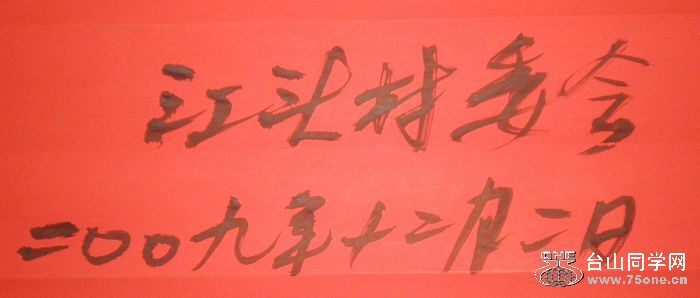 江头村委会
二〇〇九年十二月二日
ONE
台山同学网
www.75one.cn